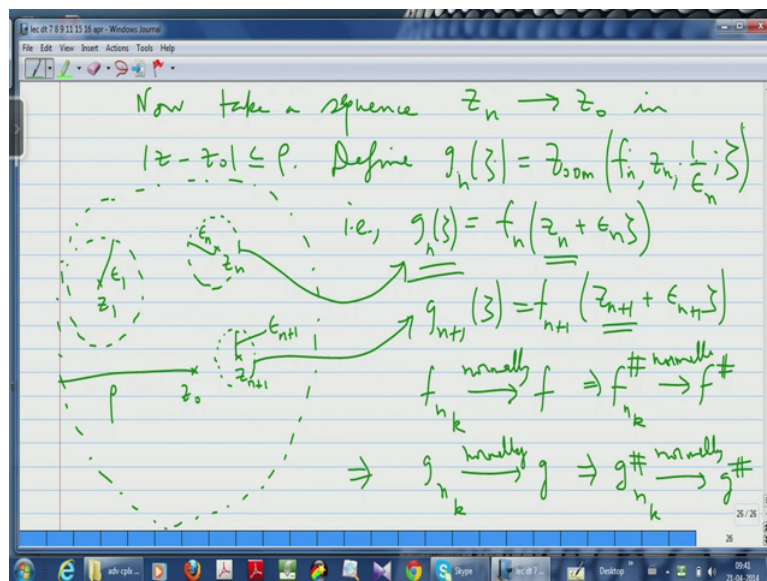 lec dt 7 8 9 11 15 16 apr - Windows Journal
File Edit View Insert Actions Tools Help
Now take a sequence z_n → z_0 in
|z - z_0| ≤ ρ. Define g_n(ζ) = Zoom(f_n, z_n; 1/ϵ_n; ζ)
i.e., g_n(ζ) = f_n(z_n + ϵ_n ζ)
g_{n+1}(ζ) = f_{n+1}(z_{n+1} + ϵ_{n+1} ζ)
ϵ_1
z_1
ϵ_n
z_n
ϵ_{n+1}
z_{n+1}
ρ
z_0
f_{n_k} normally→ f ⇒ f^#_{n_k} normally→ f^#
⇒ g_{n_k} normally→ g ⇒ g^#_{n_k} normally→ g^#
26 / 26
26
adv cplx ...
Skype
lec dt 7 ...
Desktop
09:41
21-04-2014